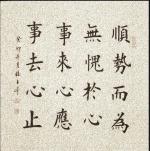 順勢而為
無愧於心
事來心應
事去心止